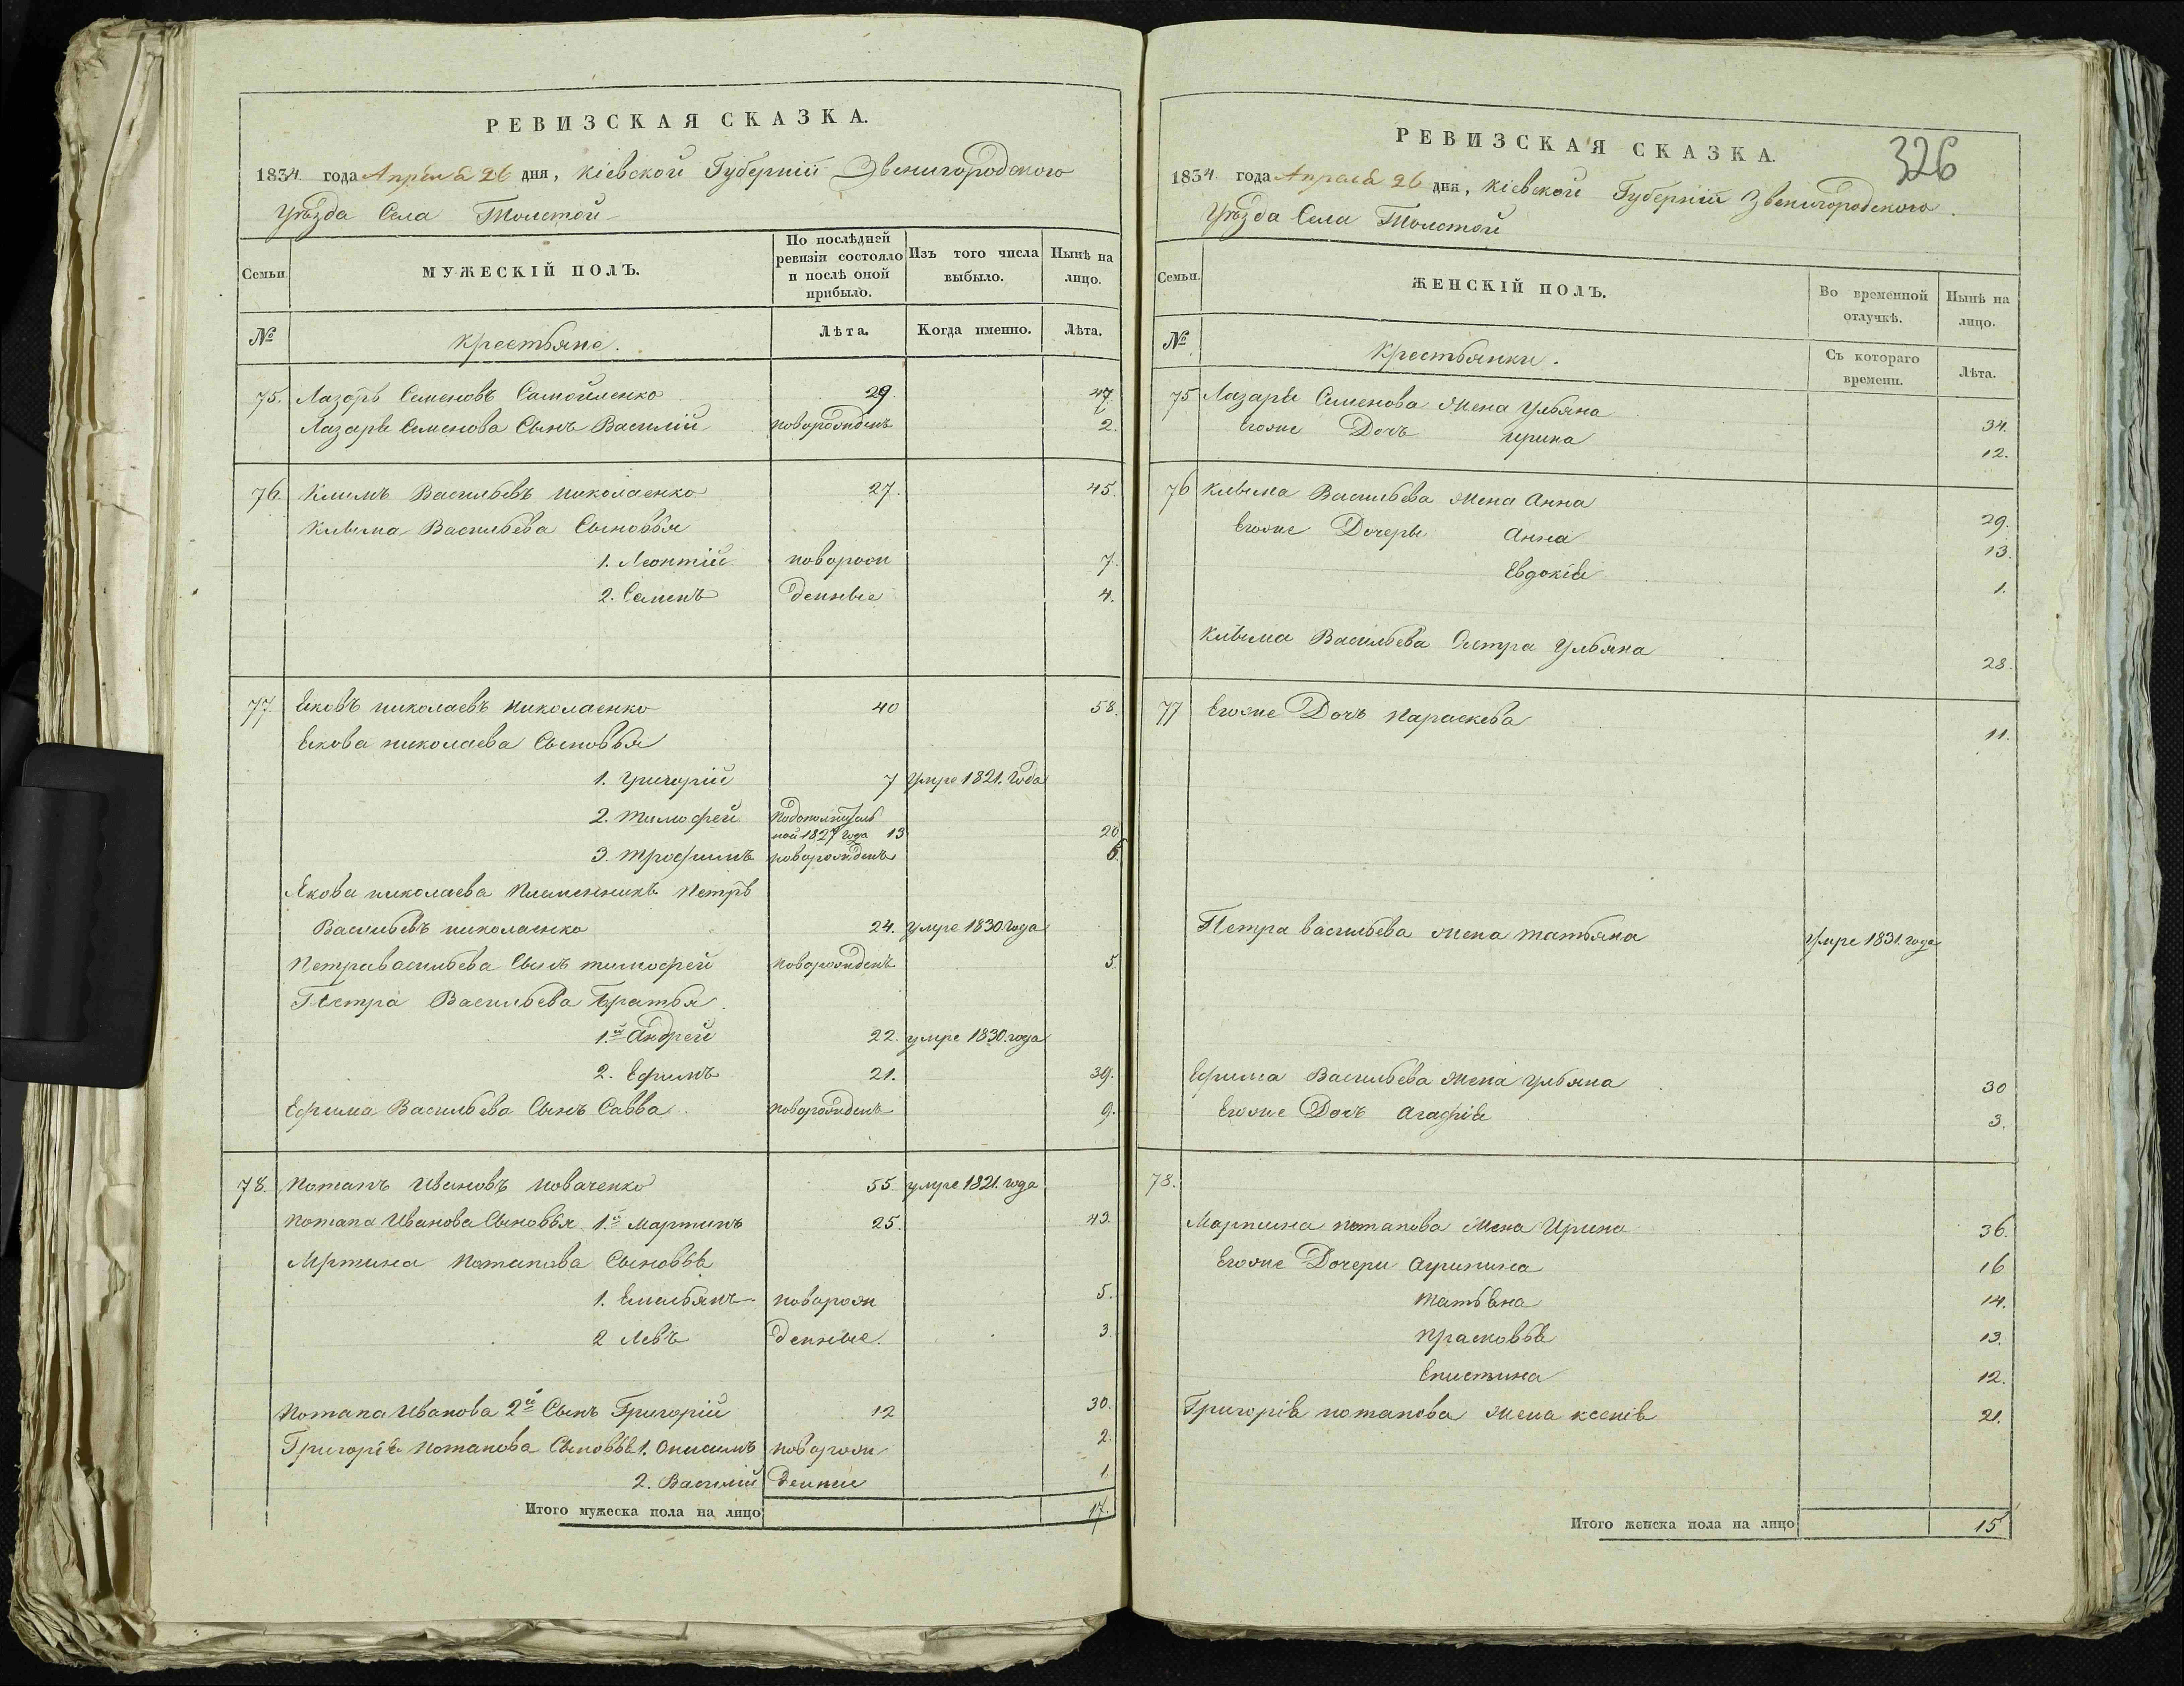 РЕВИЗСКАЯ СКАЗКА.
1834 года Апреля 26 дня, Кіевской Губерніи Звенигородского
Уѣзда Села Толстой
Семьи
МУЖЕСКІЙ ПОЛЪ.
По послѣдней ревизіи состояло и послѣ оной прибыло.
Изъ того числа выбыло.
Нынѣ на лицо.
№ Крестьяне. Лѣта. Когда именно. Лѣта.
75. Лазорь Семеновъ Самойленко 29 47
Лазаря Семенова Сынъ Василій новорожденъ 2.
76. Климъ Васильевъ Николаенко 27. 45.
Клыма Васильева Сыновья
1. Леонтій новорож 7.
2. Семенъ денные 4.
77. Яковъ Николаевъ Николаенко 40 58.
Якова Николаева Сыновья
1. Григорій 7 Умре 1821. Года
2. Тимофей подополнитель
ной 1827 года 13 20.
3. Трофимъ новорожденъ 5.
Якова Николаева Племенникъ Петръ
Васильевъ Николаенко 24. умре 1830 года
Петра Васильева Сынъ Тимофей новорожденъ 5
Петра Васильева Братья
1.й Андрей 22. умре 1830. года
2. Ефимъ 21. 39.
Ефима Васильева Сынъ Савва новорожденъ 9.
78. Потапъ Ивановъ Коваченко 55 умре 1821. года
Потапа Иванова Сыновья 1.й Мартинъ 25. 43.
Мртина Потапова Сыновья
1. Емельянъ новорож 5.
2 Левъ денные. 3.
Потапа Иванова 2й Сынъ Григорій 12 30.
Григорія Потапова Сыновья 1. Онисимъ новорож 2.
2. Василій денные 1.
Итого мужеска пола на лицо 17.
326
РЕВИЗСКАЯ СКАЗКА.
1834. года Апреля 26 дня, Кіевской Губерніи Звенигородского
Уѣзда Села Толстой
Семьи.
ЖЕНСКІЙ ПОЛЪ.
Во временной отлучкѣ.
Нынѣ на лицо.
№ Крестьянки. Съ котораго времени. Лѣта.
75 Лазаря Семенова Жена Ульяна 34.
Егоже Дочь Ирина 12.
76 Клыма Васильева Жена Анна 29.
Егоже Дочеры Анна 13.
Евдокія 1.
Клыма Васильева Систра Ульяна 28.
77 Егоже Дочь Параскева 11.
Петра Васильева Жена Татьяна Умре 1831. года
Ефима Васильева Жена Ульяна 30
Егоже Дочь Агафія 3.
78.
Мартина Потапова Жена Ирина 36.
Егоже Дочери Агрипина 16
Татьяна 14.
Прасковья 13.
Епистина 12.
Григорія Потапова Жена Ксенія 21.
Итого женска пола на лицо 15